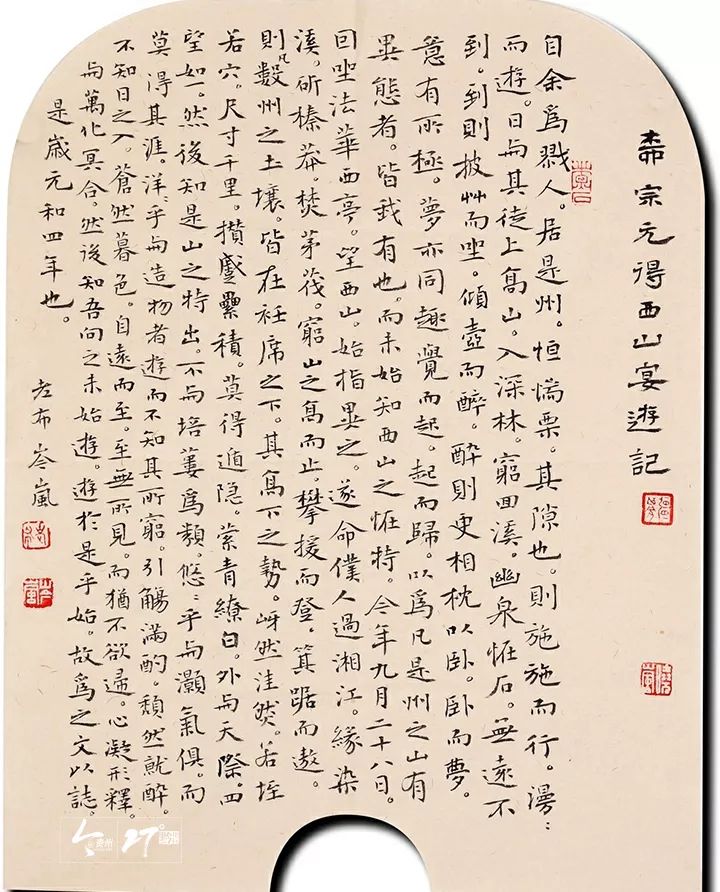 柳宗元得西山宴遊記
自余爲戮人。居是州。恒惴栗。其隙也。則施施而行。漫:
而遊。日与其徒上高山。入深林。窮回溪。幽泉怪石。無遠不
到。到則披艸而坐。傾壺而醉。醉則更相枕以卧。卧而夢。
意有所極。夢亦同趣覺而起。起而歸。以爲凡是州之山有
異態者。皆我有也。而未始知西山之怪特。今年九月二十八日。
囙坐法華西亭。望西山。始指異之。遂命僕人過湘江。緣染
溪。斫榛莽。焚茅茷。窮山之高而止。攀援而登。箕踞而遨。
則凡數州之土壤。皆在衽席之下。其高下之勢。岈然洼然。若垤
若穴。尺寸千里。攢蹙纍積。莫得遁隐。縈青繚白。外与天際。四
望如一。然後知是山之特出。不与培蔞爲類。悠:乎与灝氣俱。而
莫得其涯。洋:乎与造物者遊而不知其所窮。引觴滿酌。頹然就醉。
不知日之入。蒼然暮色。自遠而至。至無所見。而猶不欲歸。心凝形釋。
与萬化冥合。然後知吾向之未始遊。遊於是乎始。故爲之文以誌。
是歲元和四年也。
老布岑嵐